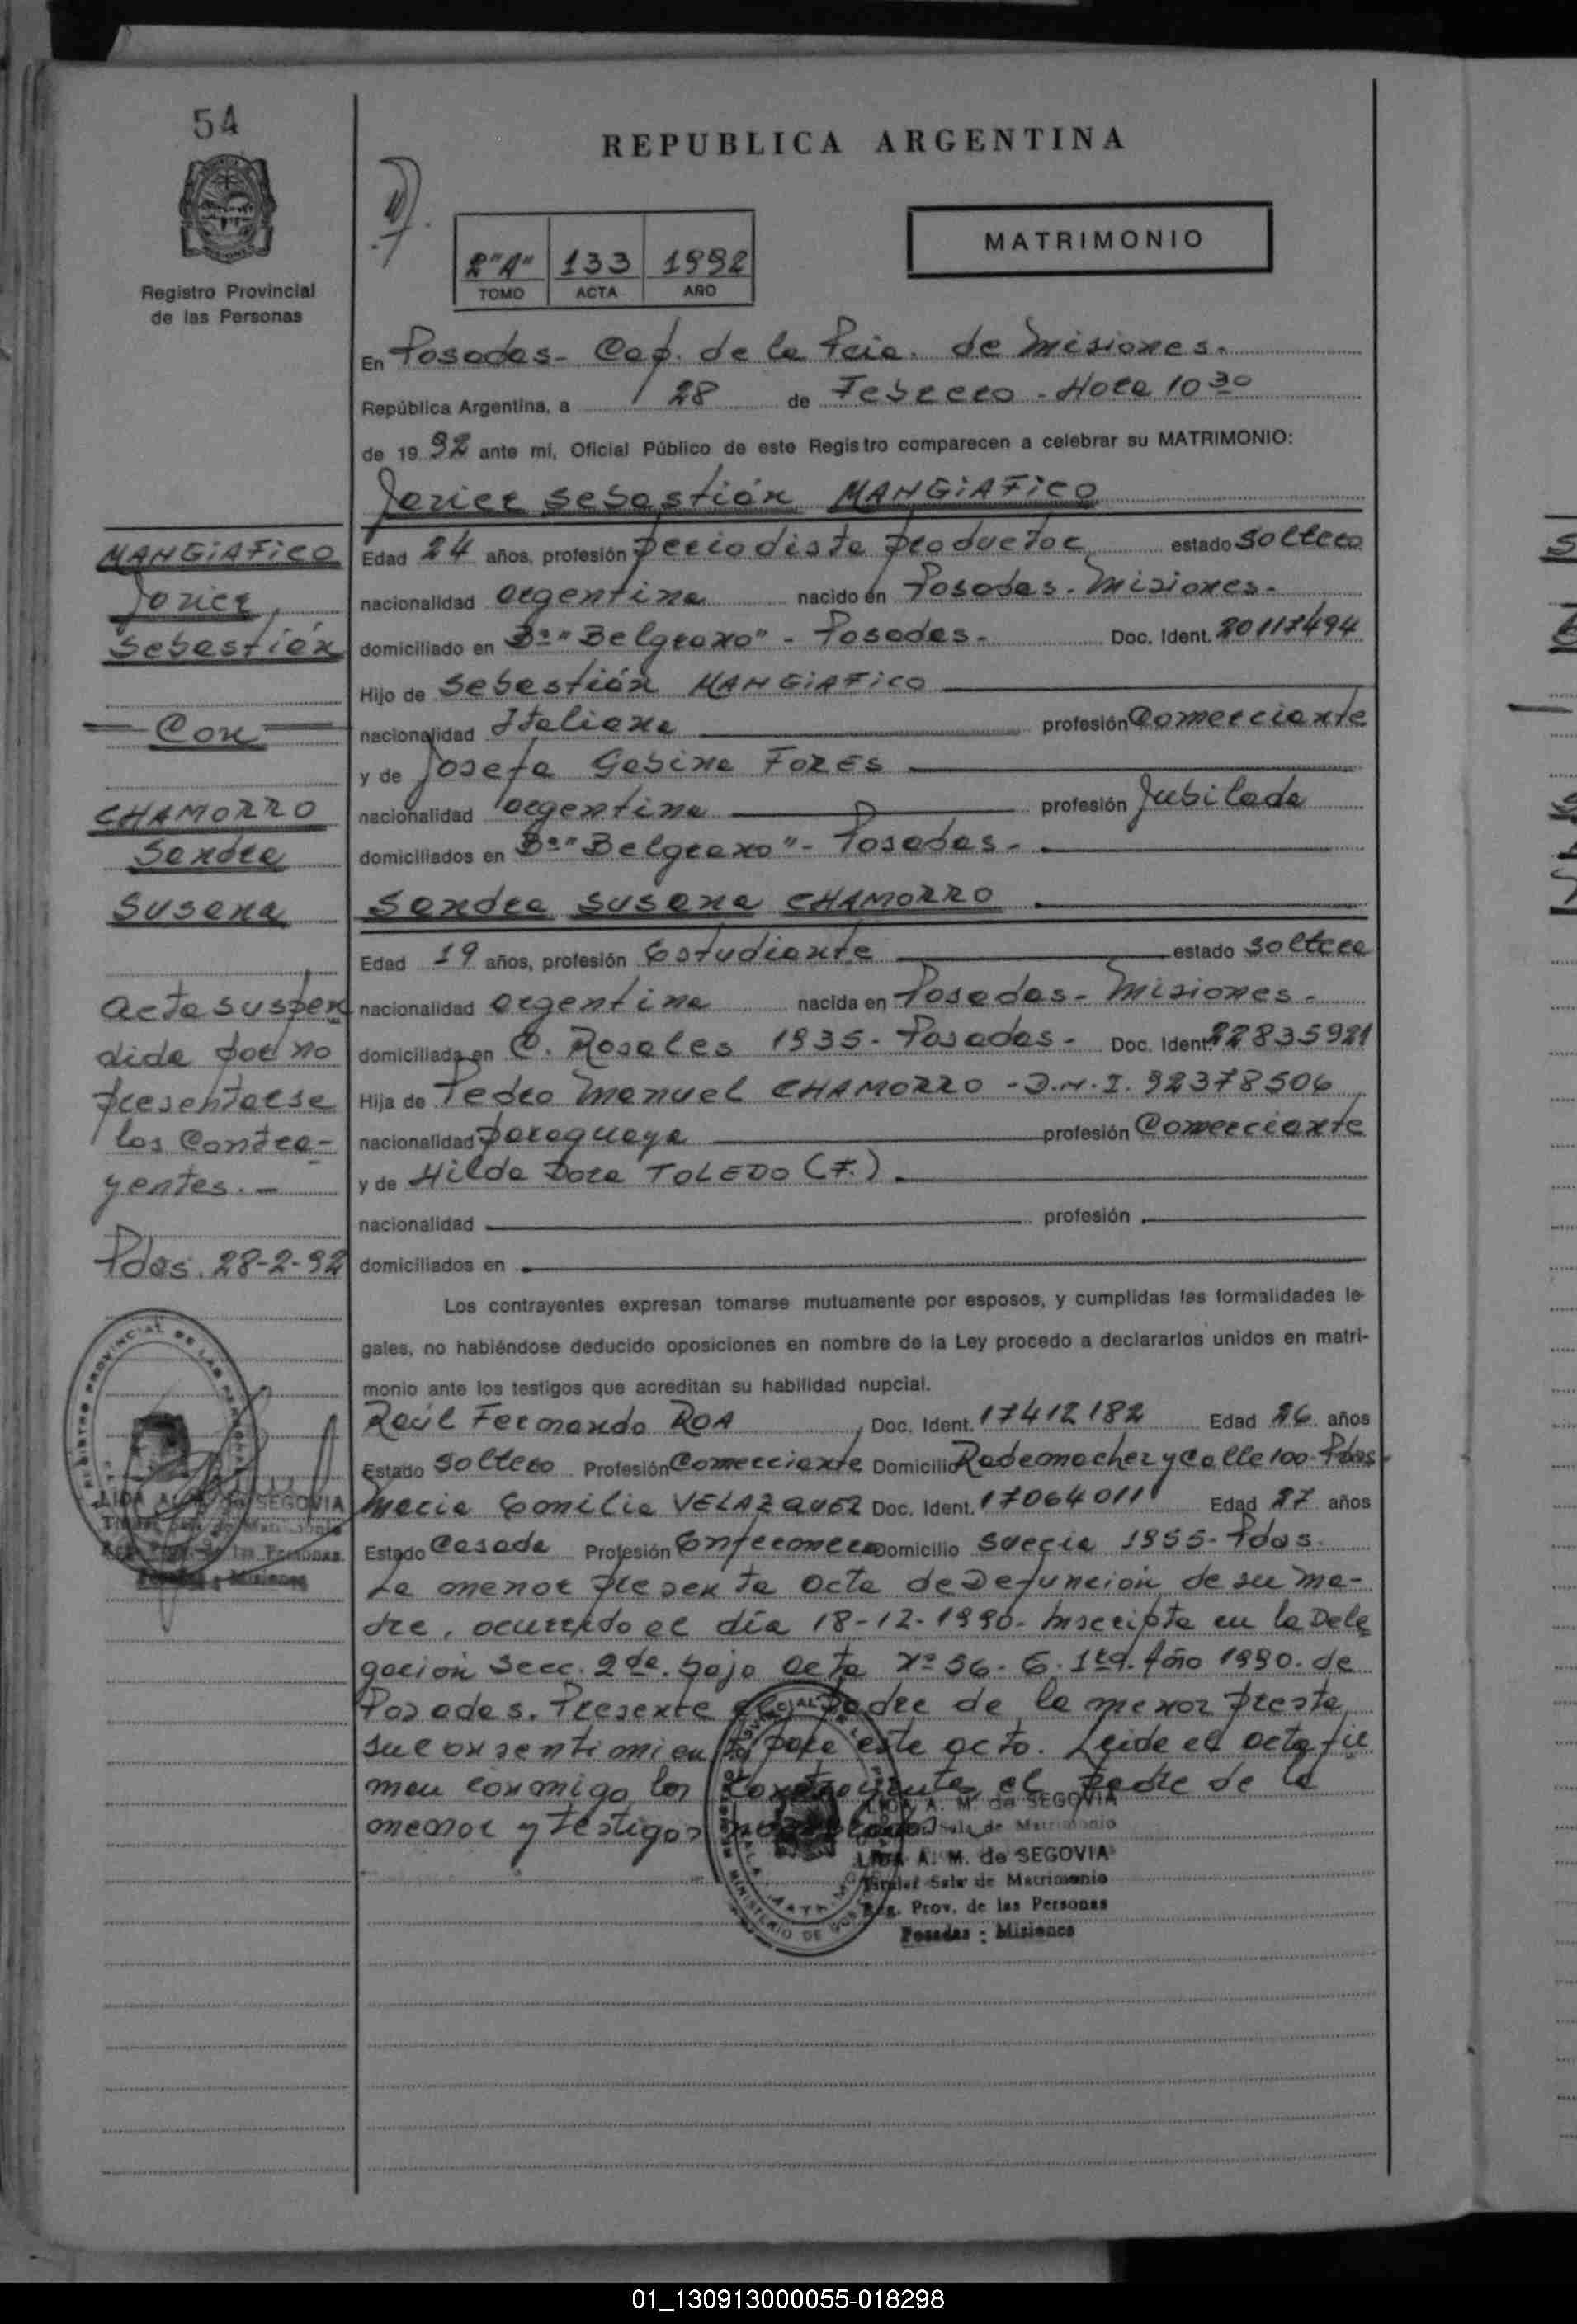 54
REPUBLICA ARGENTINA
Registro Provincial
de las Personas
2"A" 133 1992
TOMO ACTA AÑO
MATRIMONIO
En Posadas - Cap. de la Pcia. de Misiones.
República Argentina, a 28 de Febrero - Hora 10 30
de 19 92 ante mi, Oficial Público de este Registro comparecen a celebrar su MATRIMONIO:
Javier Sebastián MANGiAFiCO
MANGiAFiCO
Javier
Sebastián
Con
CHAMORRO
Sandra
Susana
Acta suspen
dida por no
presentarse
los Contra-
yentes. -
Pdas. 28-2-92
Edad 24 años, profesión periodista productor estado soltero
nacionalidad argentina nacido en Posadas - Misiones -
domiciliado en Bº "Belgrano" - Posadas - Doc. Ident. 20117494
Hijo de Sebastián MANGiAFiCO
nacionalidad Italiana profesión Comerciante
y de Josefa Gabina FORES
nacionalidad argentina profesión Jubilada
domiciliados en Bº "Belgrano" - Posadas -
Sandra Susana CHAMORRO
Edad 19 años, profesión Estudiante estado soltera
nacionalidad argentina nacida en Posadas - Misiones -
domiciliada en C. Rosales 1935 - Posadas - Doc. Ident. 22835921
Hija de Pedro Manuel CHAMORRO - D.N.I. 92378506
nacionalidad paraguaya profesión Comerciante
y de Hilda Dora TOLEDO (F.)
nacionalidad profesión
domiciliados en
Los contrayentes expresan tomarse mutuamente por esposos, y cumplidas las formalidades le-
gales, no habiéndose deducido oposiciones en nombre de la Ley procedo a declararlos unidos en matri-
monio ante los testigos que acreditan su habilidad nupcial.
Raúl Fernando ROA Doc. Ident. 17412182 Edad 26 años
Estado soltero Profesión Comerciante Domicilio Rademacher y Calle 100 - Pdas.
Maria Emilia VELAZQUEZ Doc. Ident. 17064011 Edad 27 años
Estado Casada Profesión Enfermera Domicilio Suecia 1955 - Pdas.
La menor presenta acta de Defunción de su ma-
dre, ocurrido el día 18-12-1990 - Inscripta en la Dele
gación Secc. 2da. bajo acta Nº 56 - 6. Año 1990. de
Posadas. Presente el padre de la menor presta
su consentimiento para este acto. Leida el acta fir
man conmigo los contrayentes el padre de la
menor y testigos
LIDA A. M. de SEGOVIA
Sala de Matrimonio
LIDA A. M. de SEGOVIA
Titular Sala de Matrimonio
Reg. Prov. de las Personas
Posadas - Misiones
01_130913000055-018298